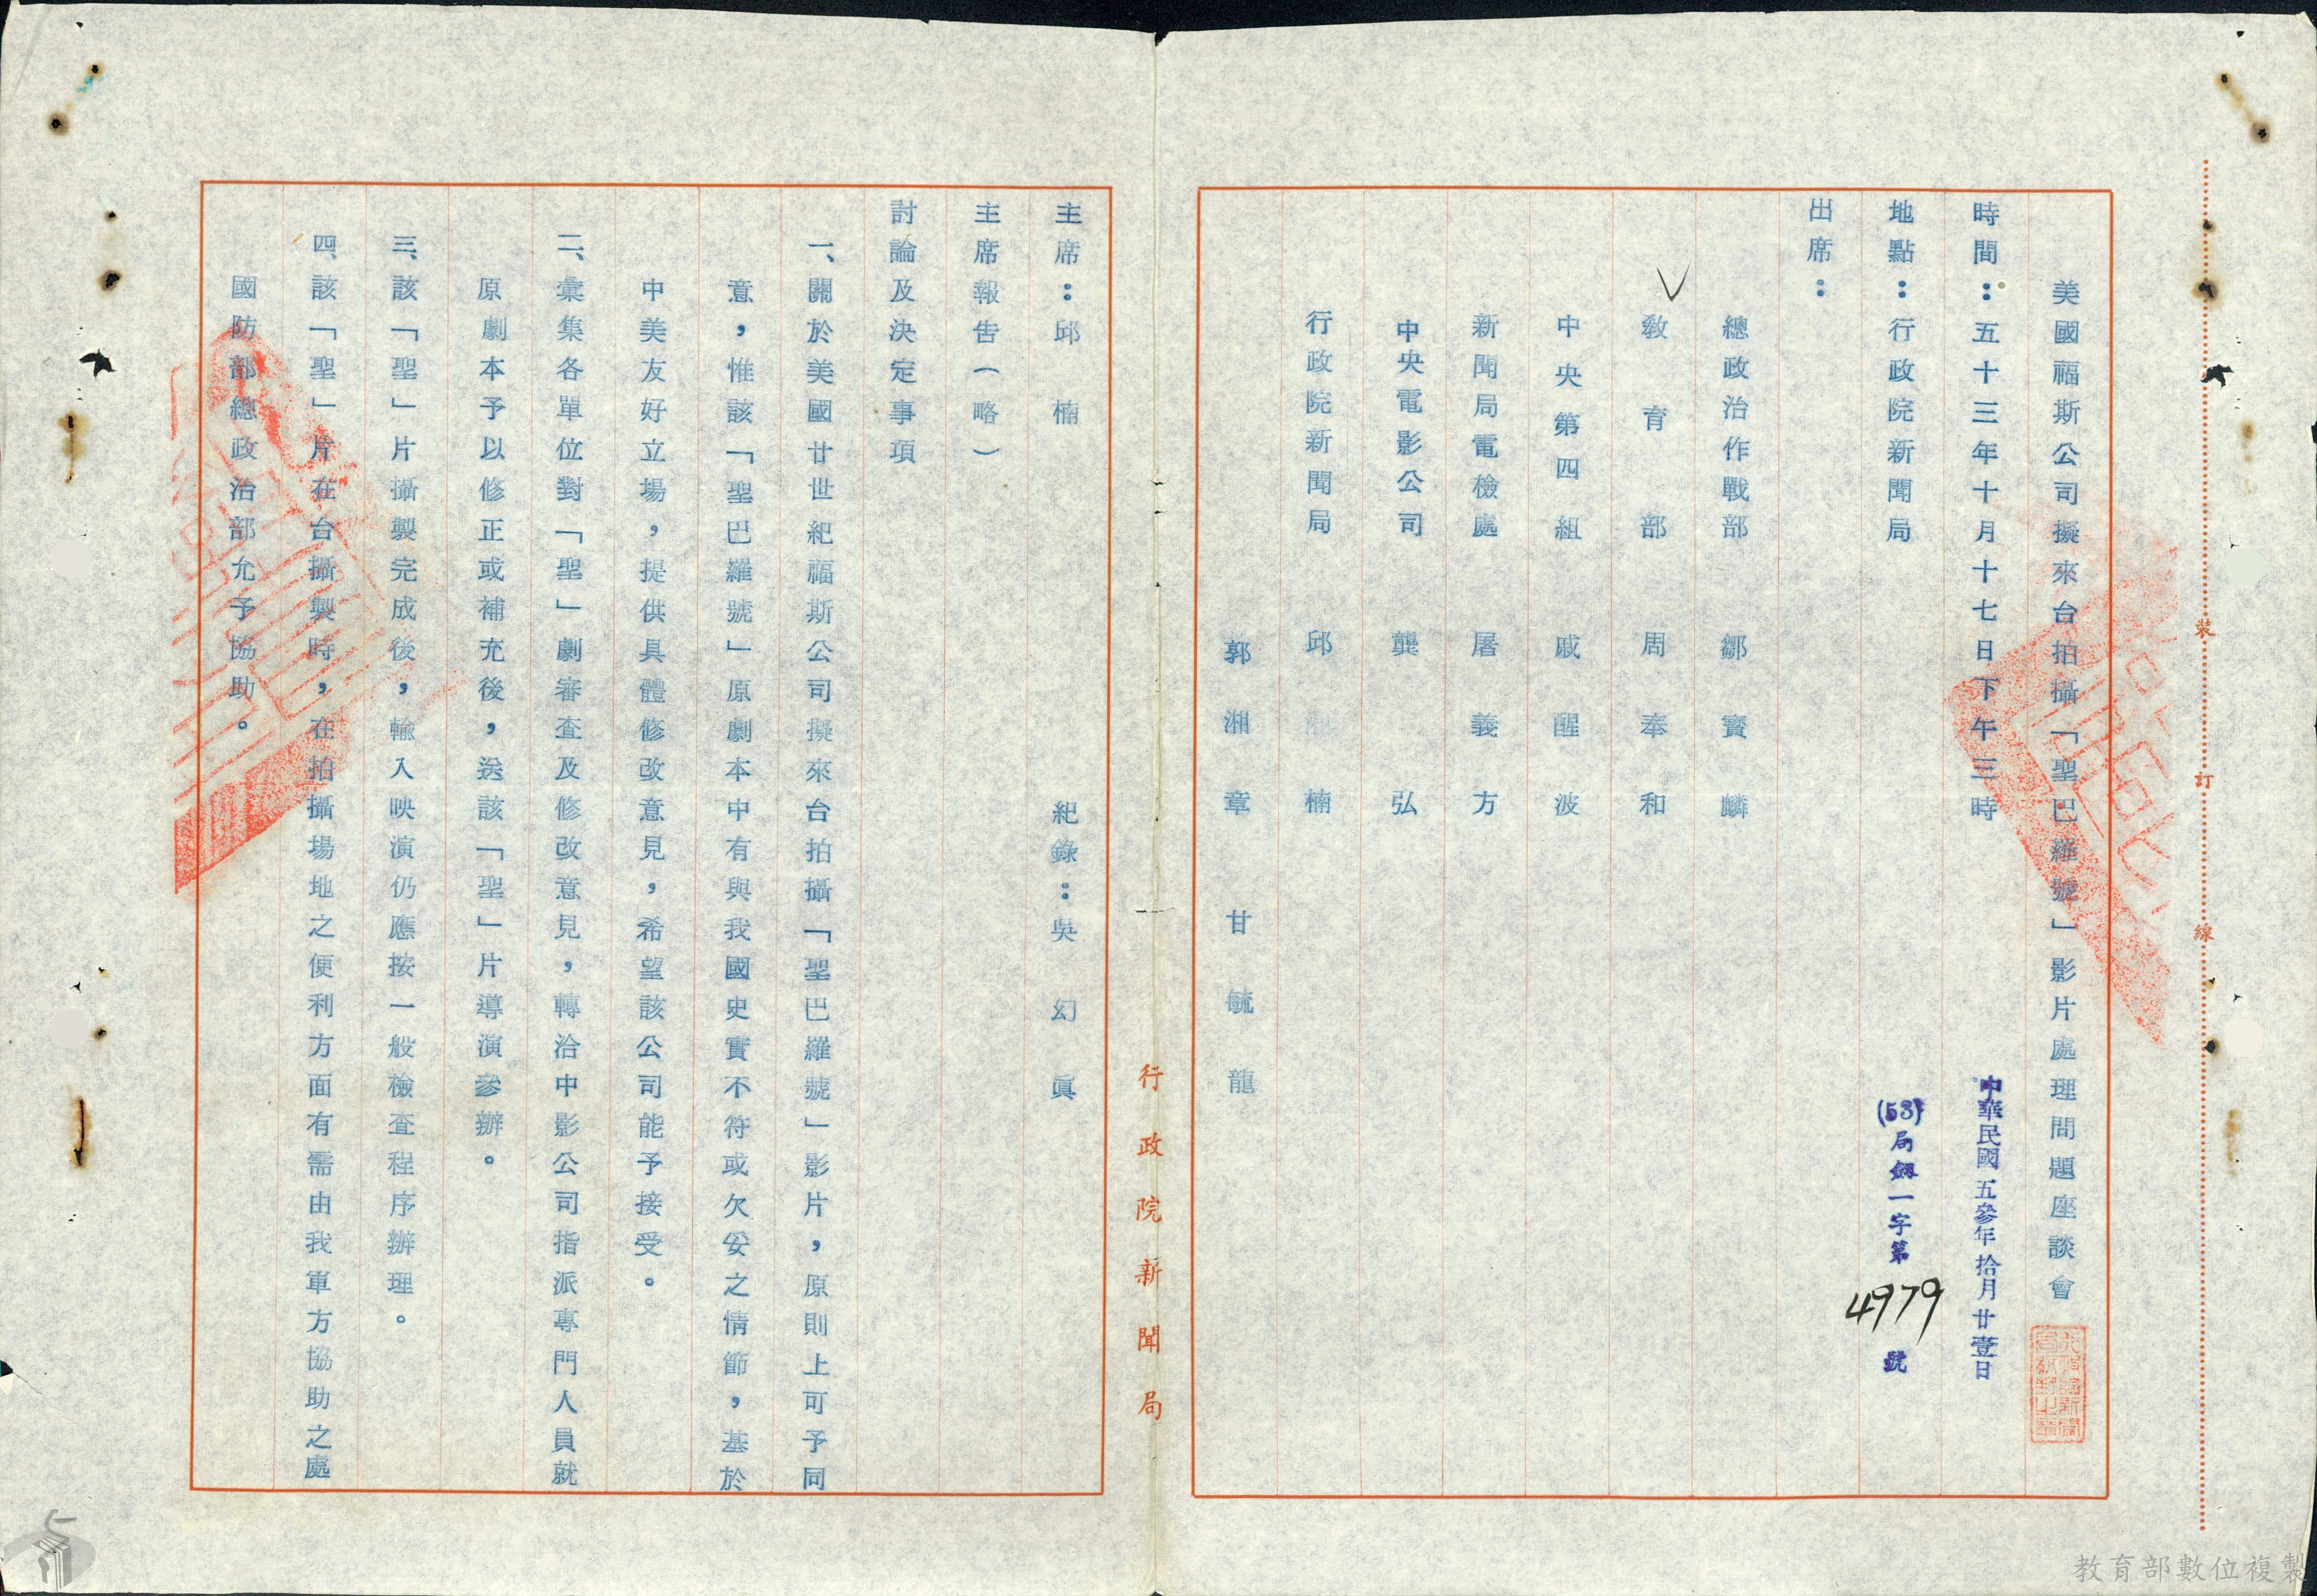 美國福斯公司擬來台拍攝「聖巴羅號」影片處理問題座談會
時間：五十三年十月十七日下午三時
中華民國五參年拾月廿壹日
地點：行政院新聞局
(53)局劔一字第4979號
出席：
總政治作戰部 鄒寶麟
教育部 周奉和
中央第四組 戚醒波
新聞局電檢處 屠義方
中央電影公司 龔弘
行政院新聞局 邱楠
郭湘章 甘毓龍
裝訂線
行政院新聞局
主席：邱楠 紀錄：吳幻眞
主席報告（略）
討論及決定事項
一、關於美國廿世紀福斯公司擬來台拍攝「聖巴羅號」影片，原則上可予同
意，惟該「聖巴羅號」原劇本中有與我國史實不符或欠妥之情節，基於
中美友好立場，提供具體修改意見，希望該公司能予接受。
二、彙集各單位對「聖」劇審查及修改意見，轉洽中影公司指派專門人員就
原劇本予以修正或補充後，送該「聖」片導演參辦。
三、該「聖」片攝製完成後，輸入映演仍應按一般檢查程序辦理。
四、該「聖」片在台攝製時，在拍攝場地之便利方面有需由我軍方協助之處
國防部總政治部允予協助。
教育部數位複製